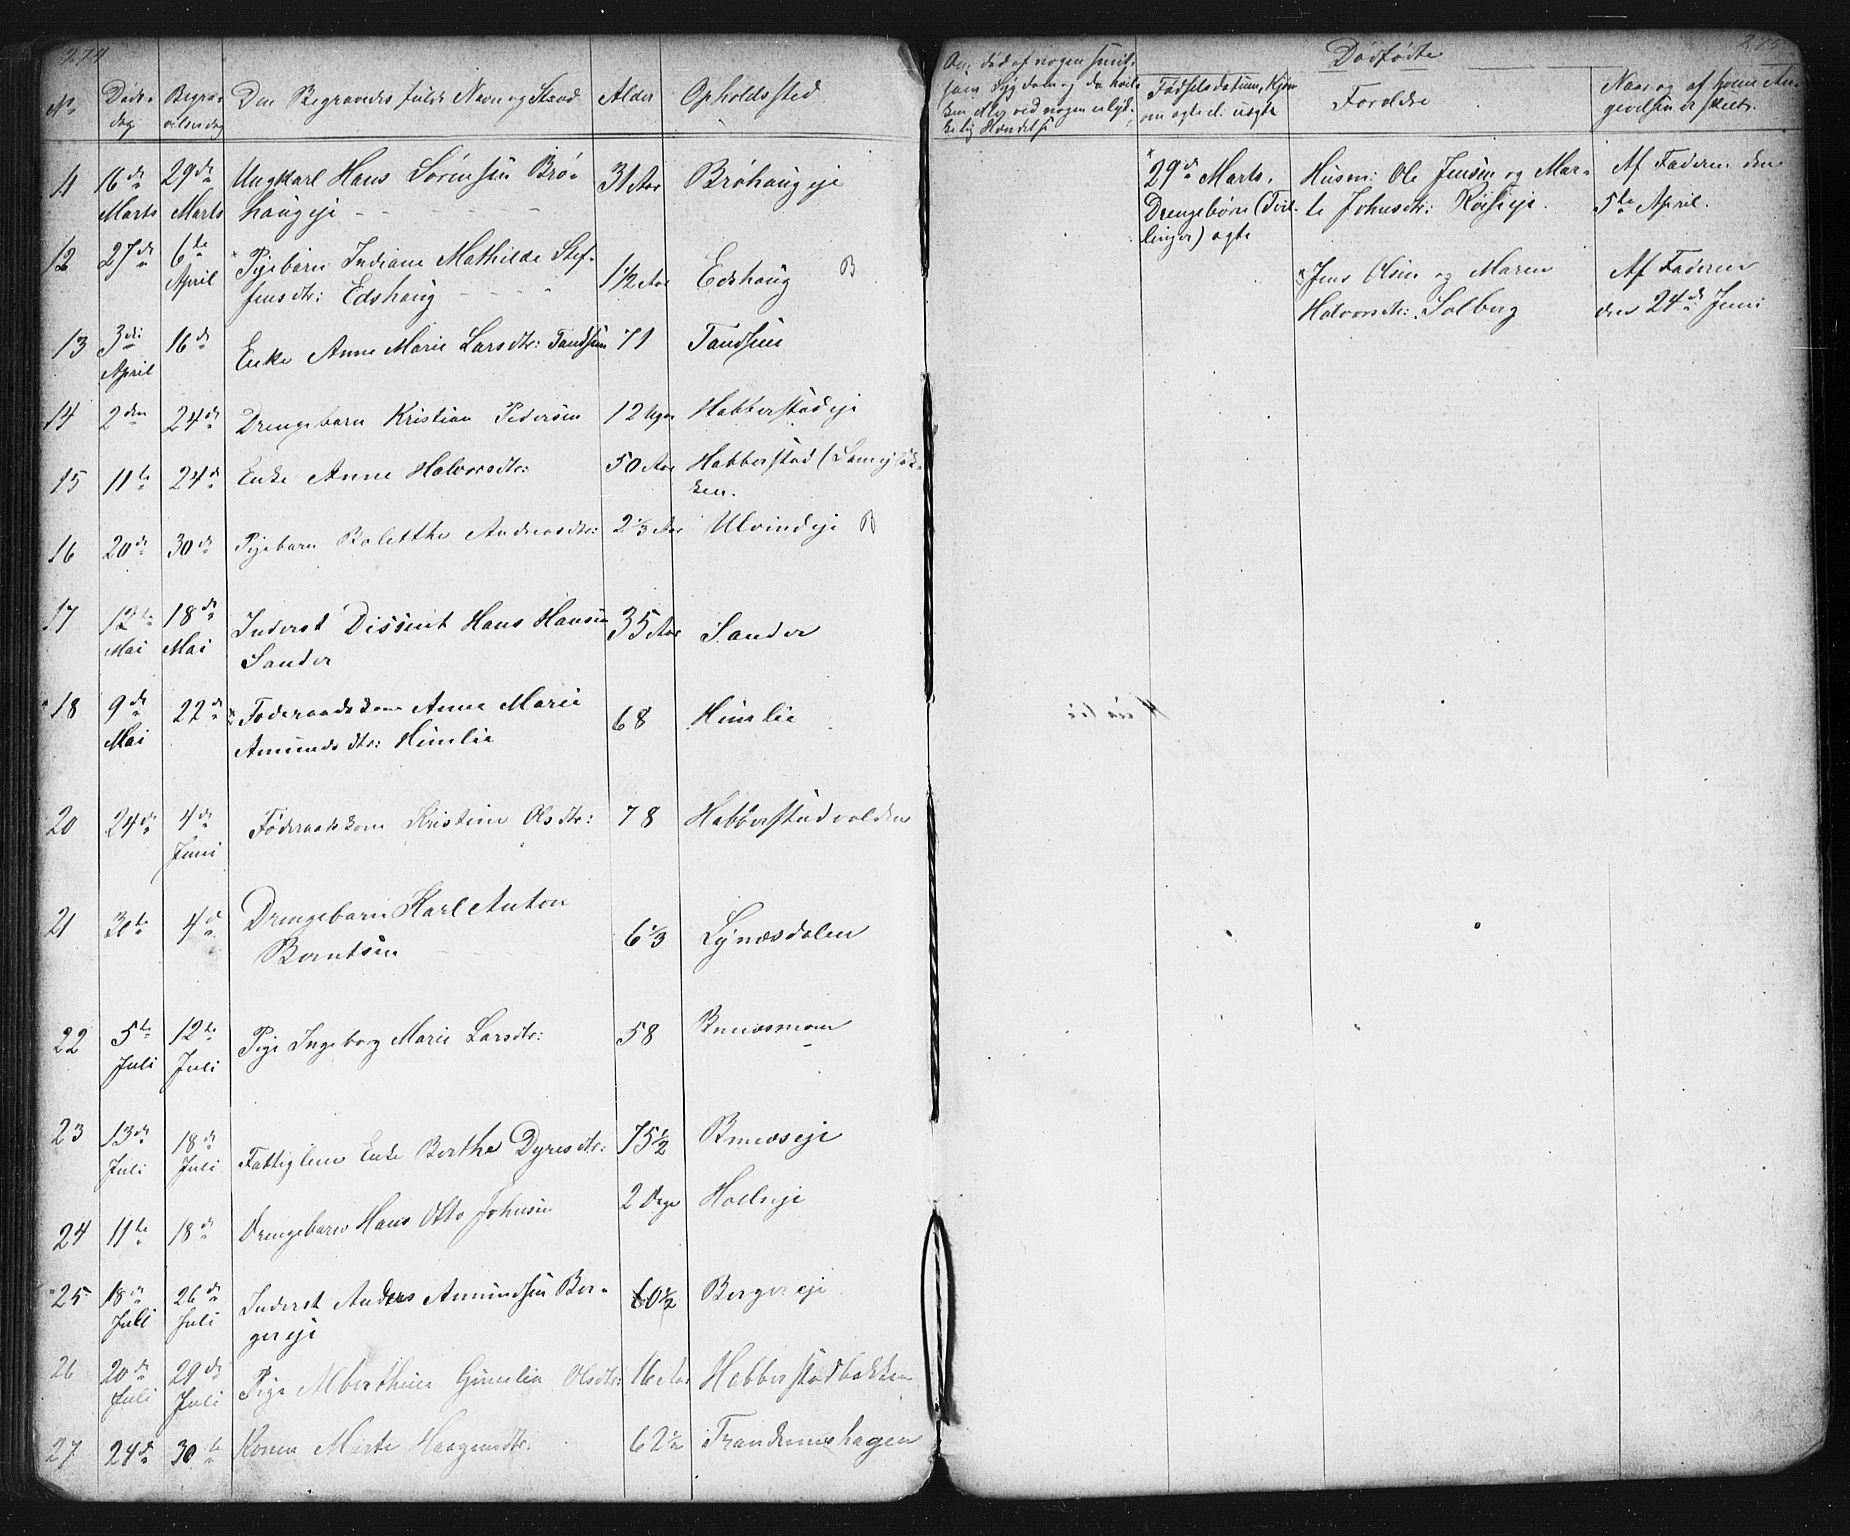 274
No Døds- Begra- Den Begravedes fulde Navn og Stand Alder Opholdssted
dag velsesdag
11 16de 29de Ungkarl Hans Sørensen Brø- 31 Aar Brøhaugeje
Marts Marts haugeje
12 27de 6te Pigebarn Indiane Mathilde Stef- 1½ Aar Edshaug B
April fensdtr: Edshaug
13 3die 16de Enke Anne Marie Larsdtr: Tandsæm 71 Tandsæm
April
14 2den 24de Drengebarn Kristian Pedersen 12 Uger Habberstadeje
15 11te 24de Enke Anne Halvorsdtr: 50 Aar Habberstad
ken.
16 20de 30de Pigebarn Bolette Andreasdtr: 2⅓ Aar Ulvindeje B
17 12te 18de Inderst Dissent Hans Hansen 35 Aar Sander
Mai Mai Sander
18 9de 22de Føderaadskone Anne Marie 68 Himlie
Mai Amundsdtr: Himlie
20 24de 4de Føderaadskone Kristine Olsdtr: 78 Habberstadvolden
Juni
21 31te 4de Drengebarn Karl Anton 6⅓ Lynæsdalen
Berntsen
22 5te 12te Pige Ingeborg Marie Larsdtr: 58 Brunæsmoen
Juli Juli
23 13de 18de Fattiglem Enke Berthe Dyresdtr: 75½ Brunæseje
Juli Juli
24 11te 18de Drengebarn Hans Otto Johnsen 2 Dage Holseje
25 18de 26de Inderst Anders Amundsen Ber- 60½ Bergereje
Juli Juli gereje
26 20de 29de Pige Alberthine Gunelia Olsdtr: 16 Aar Habberstadbakken
Juli Juli
27 24de 30te Konen Marte Haagensdtr: 62½ Trandemshagen
275
Om død af nogen smit-
som Sygdom og da hvil-
ken eller ved nogen ulyk-
kelig Hændelse
Dødfødte
Fødselsdatum, Kjøn
om ægte el. uægte
Forældre
Naar og af hvem An-
givelsen er skeet.
29de Marts. Husm: Ole Jensen og Mar- Af Faderen den
Drengebørn (Tvil- te Johnsdtr: Røiseje. 5te April.
linger) ægte
Jens Olsen og Maren Af Faderen
Halvorsdtr: Solberg den 24de Juni